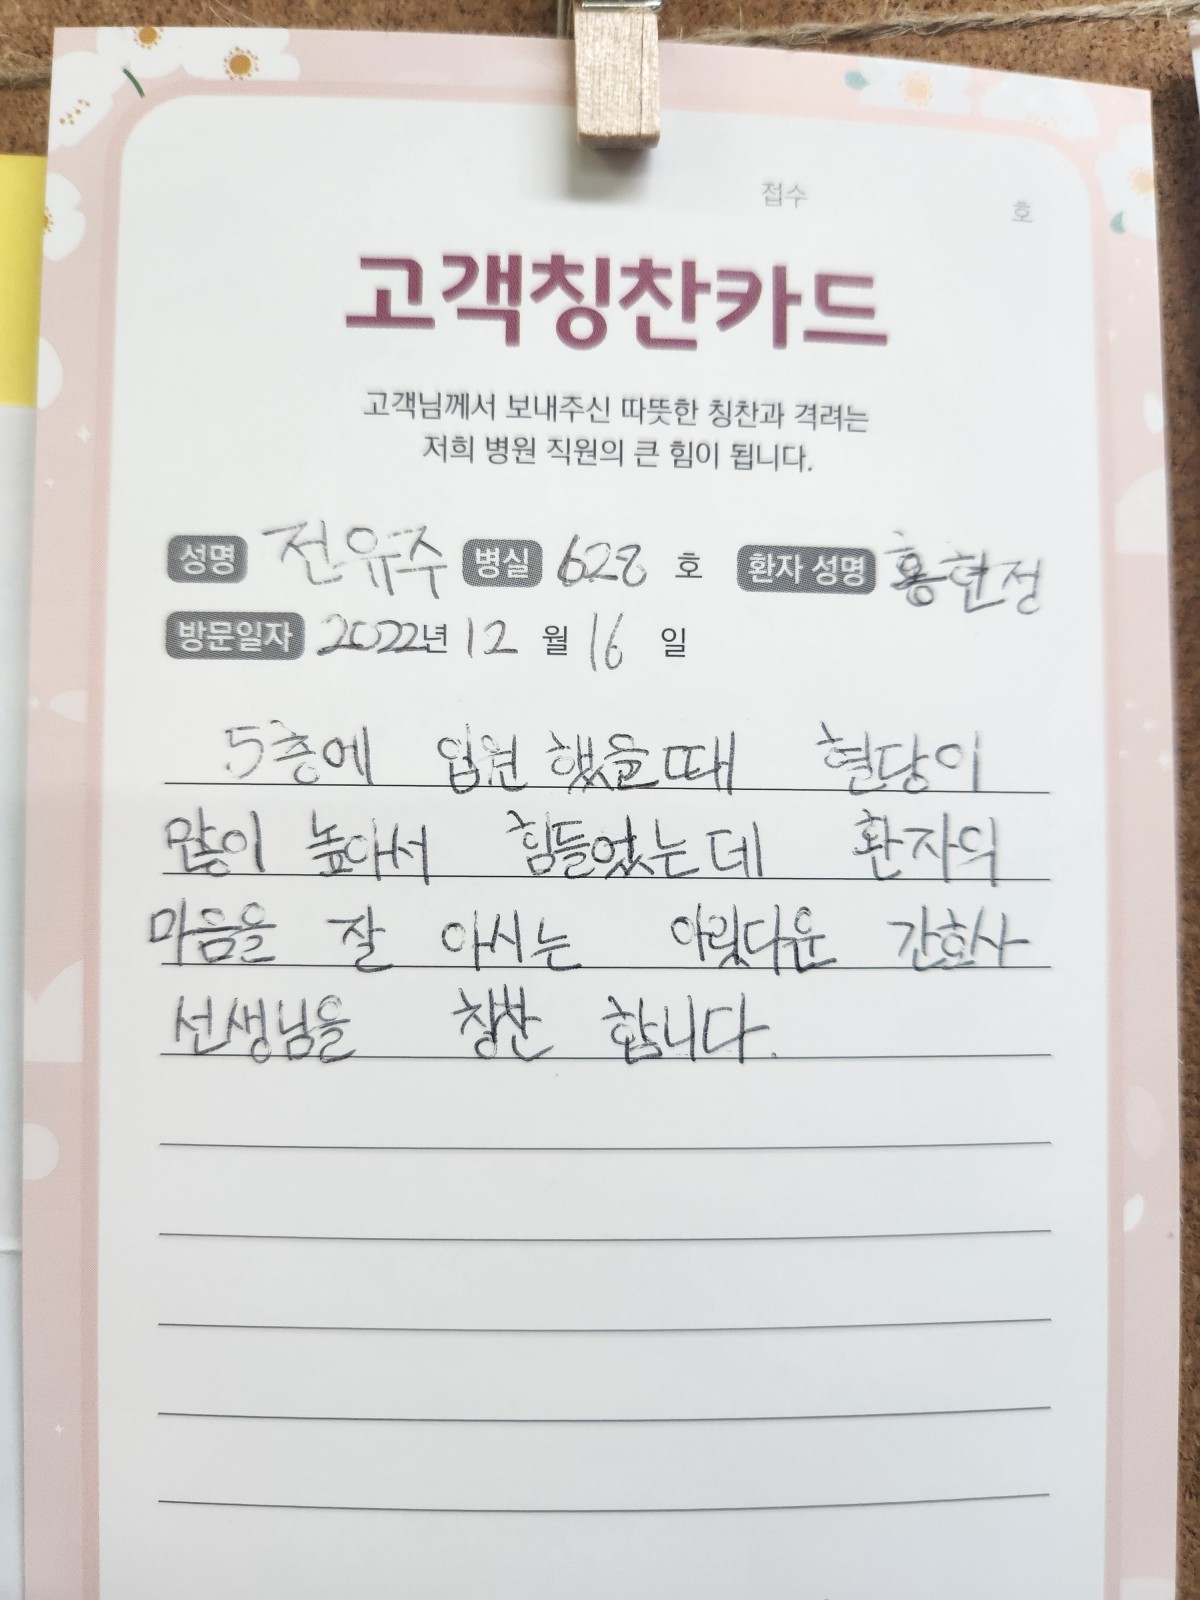 접수 호
고객칭찬카드
고객님께서 보내주신 따뜻한 칭찬과 격려는
저희 병원 직원의 큰 힘이 됩니다.
성명 전유주 병실 628 호 환자 성명 홍현정
방문일자 2022년 12 월 16 일
5층에 입원 했을때 혈당이
많이 높아서 힘들었는데 환자의
마음을 잘 아시는 아릿다운 간호사
선생님을 칭찬 합니다.